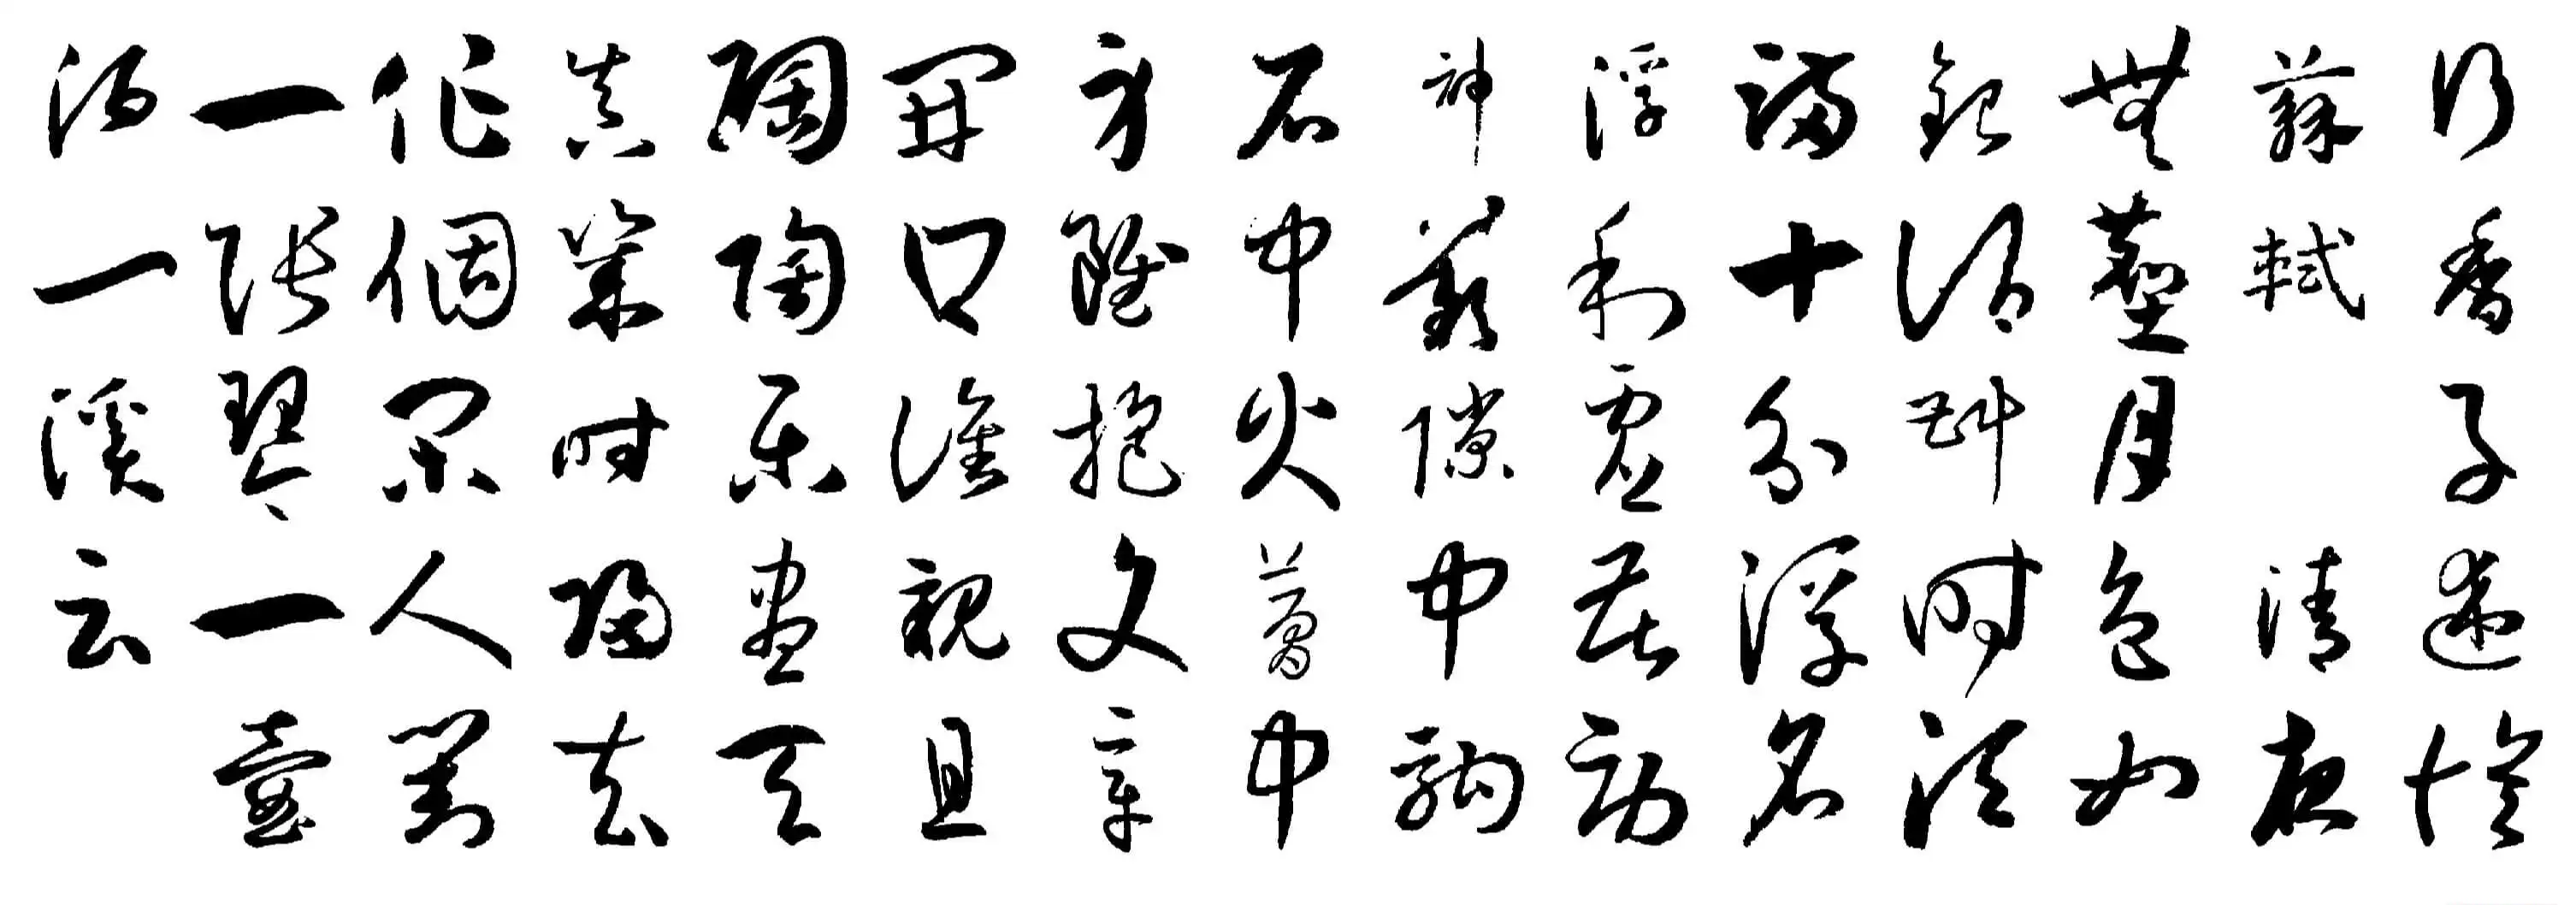 行香子述懷
蘇軾 清夜
無塵月色如
銀酒斟時須
滿十分浮名
浮利虛苦勞
神嘆隙中駒
石中火夢中
身雖抱文章
開口誰親且
陶陶樂盡天
真幾時歸去
作個閑人對
一張琴一壺
酒一溪云